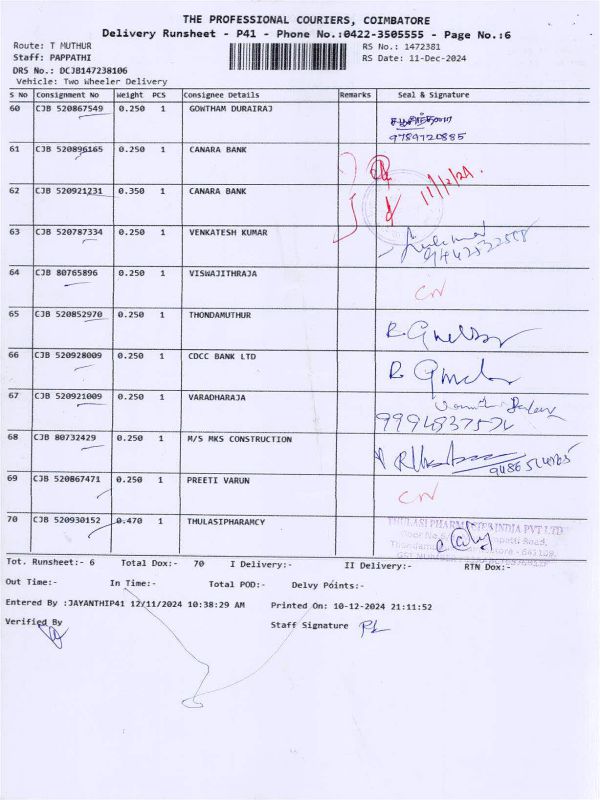 THE PROFESSIONAL COURIERS, COIMBATORE
Delivery Runsheet - P41 - Phone No.:0422-3505555 - Page No.:6
Route: T MUTHUR
RS No.: 1472381
Staff: PAPPATHI
RS Date: 11-Dec-2024
DRS No.: DCJB147238106
Vehicle: Two Wheeler Delivery
S No Consignment No Weight PCS Consignee Details Remarks Seal & Signature
60 CJB 520867549 0.250 1 GOWTHAM DURAIRAJ
9789720885
61 CJB 520896165 0.250 1 CANARA BANK
11/12/24.
62 CJB 520921231 0.350 1 CANARA BANK
63 CJB 520787334 0.250 1 VENKATESH KUMAR
9442532558
64 CJB 80765896 0.250 1 VISWAJITHRAJA
CN
65 CJB 520852970 0.250 1 THONDAMUTHUR
66 CJB 520928009 0.250 1 CDCC BANK LTD
67 CJB 520921009 0.250 1 VARADHARAJA
68 CJB 80732429 0.250 1 M/S MKS CONSTRUCTION
69 CJB 520867471 0.250 1 PREETI VARUN
CN
70 CJB 520930152 0.470 1 THULASIPHARAMCY
THULASI PHARMACIES INDIA PVT LTD
Tot. Runsheet:- 6 Total Dox:- 70 I Delivery:- II Delivery:- RTN Dox:-
Out Time:- In Time:- Total POD:- Delvy Points:-
Entered By :JAYANTHIP41 12/11/2024 10:38:29 AM Printed On: 10-12-2024 21:11:52
Verified By Staff Signature